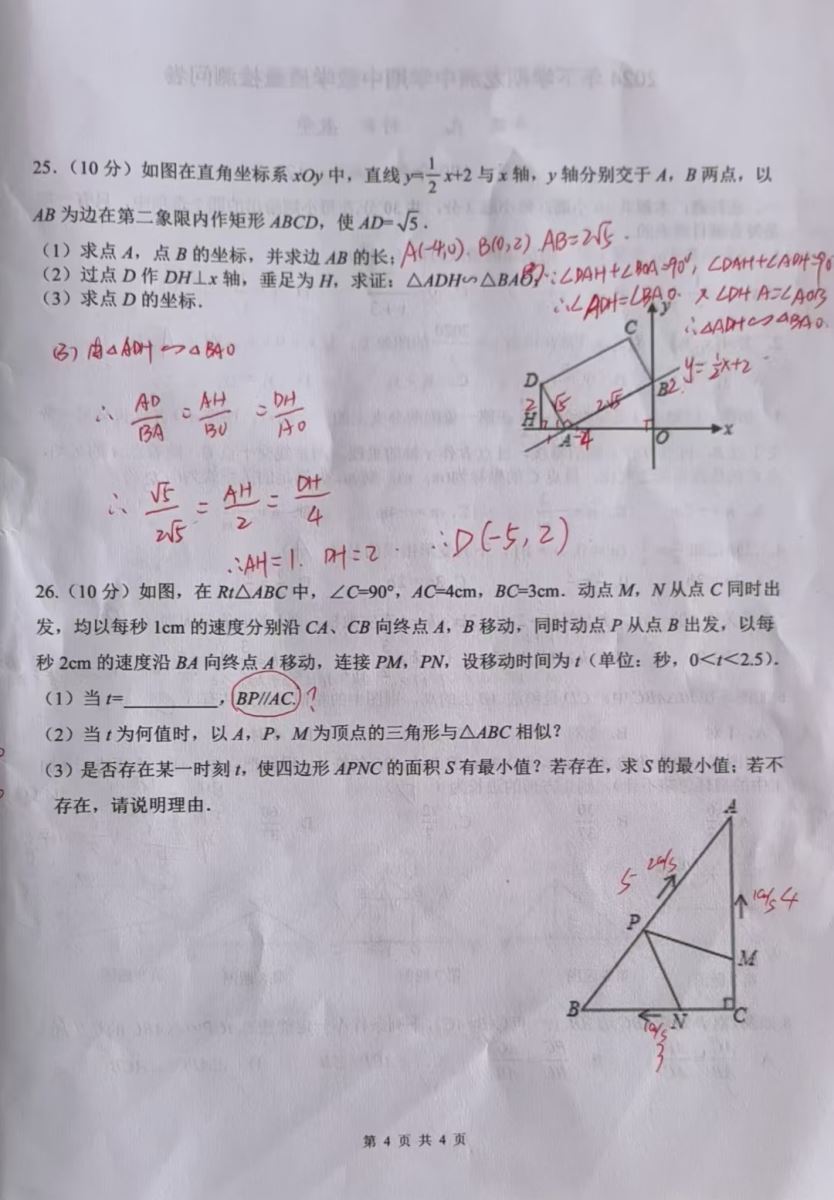 25.（10 分）如图在直角坐标系 xOy 中，直线 y=1/2x+2 与 x 轴，y 轴分别交于 A，B 两点，以
AB 为边在第二象限内作矩形 ABCD，使 AD=√5．
（1）求点 A，点 B 的坐标，并求边 AB 的长；A(-4,0). B(0,2) AB=2√5.
（2）过点 D 作 DH⊥x 轴，垂足为 H，求证：△ADH∽△BAO； ∵∠DAH+∠BOA=90°, ∠DAH+∠ADH=90
（3）求点 D 的坐标．
∴∠ADH=∠BAO. 又∠DHA=∠AOB
∴△ADH∽△BAO.
(3) 由△ADH∽△BAO
∴ AD/BA = AH/BO = DH/AO
∴ √5/2√5 = AH/2 = DH/4
∴AH=1. DH=2 ∴D(-5,2)
y
C
y=1/2x+2
D
B2.
2
√5
2√5
H
1
A
-4
O
x
26.（10 分）如图，在 Rt△ABC 中，∠C=90°，AC=4cm，BC=3cm．动点 M，N 从点 C 同时出
发，均以每秒 1cm 的速度分别沿 CA、CB 向终点 A，B 移动，同时动点 P 从点 B 出发，以每
秒 2cm 的速度沿 BA 向终点 A 移动，连接 PM，PN，设移动时间为 t（单位：秒，0＜t＜2.5）．
（1）当 t=________，BP//AC.？
（2）当 t 为何值时，以 A，P，M 为顶点的三角形与△ABC 相似？
（3）是否存在某一时刻 t，使四边形 APNC 的面积 S 有最小值？若存在，求 S 的最小值；若不
存在，请说明理由．
A
5
4
P
M
B
N
C
3
第 4 页 共 4 页